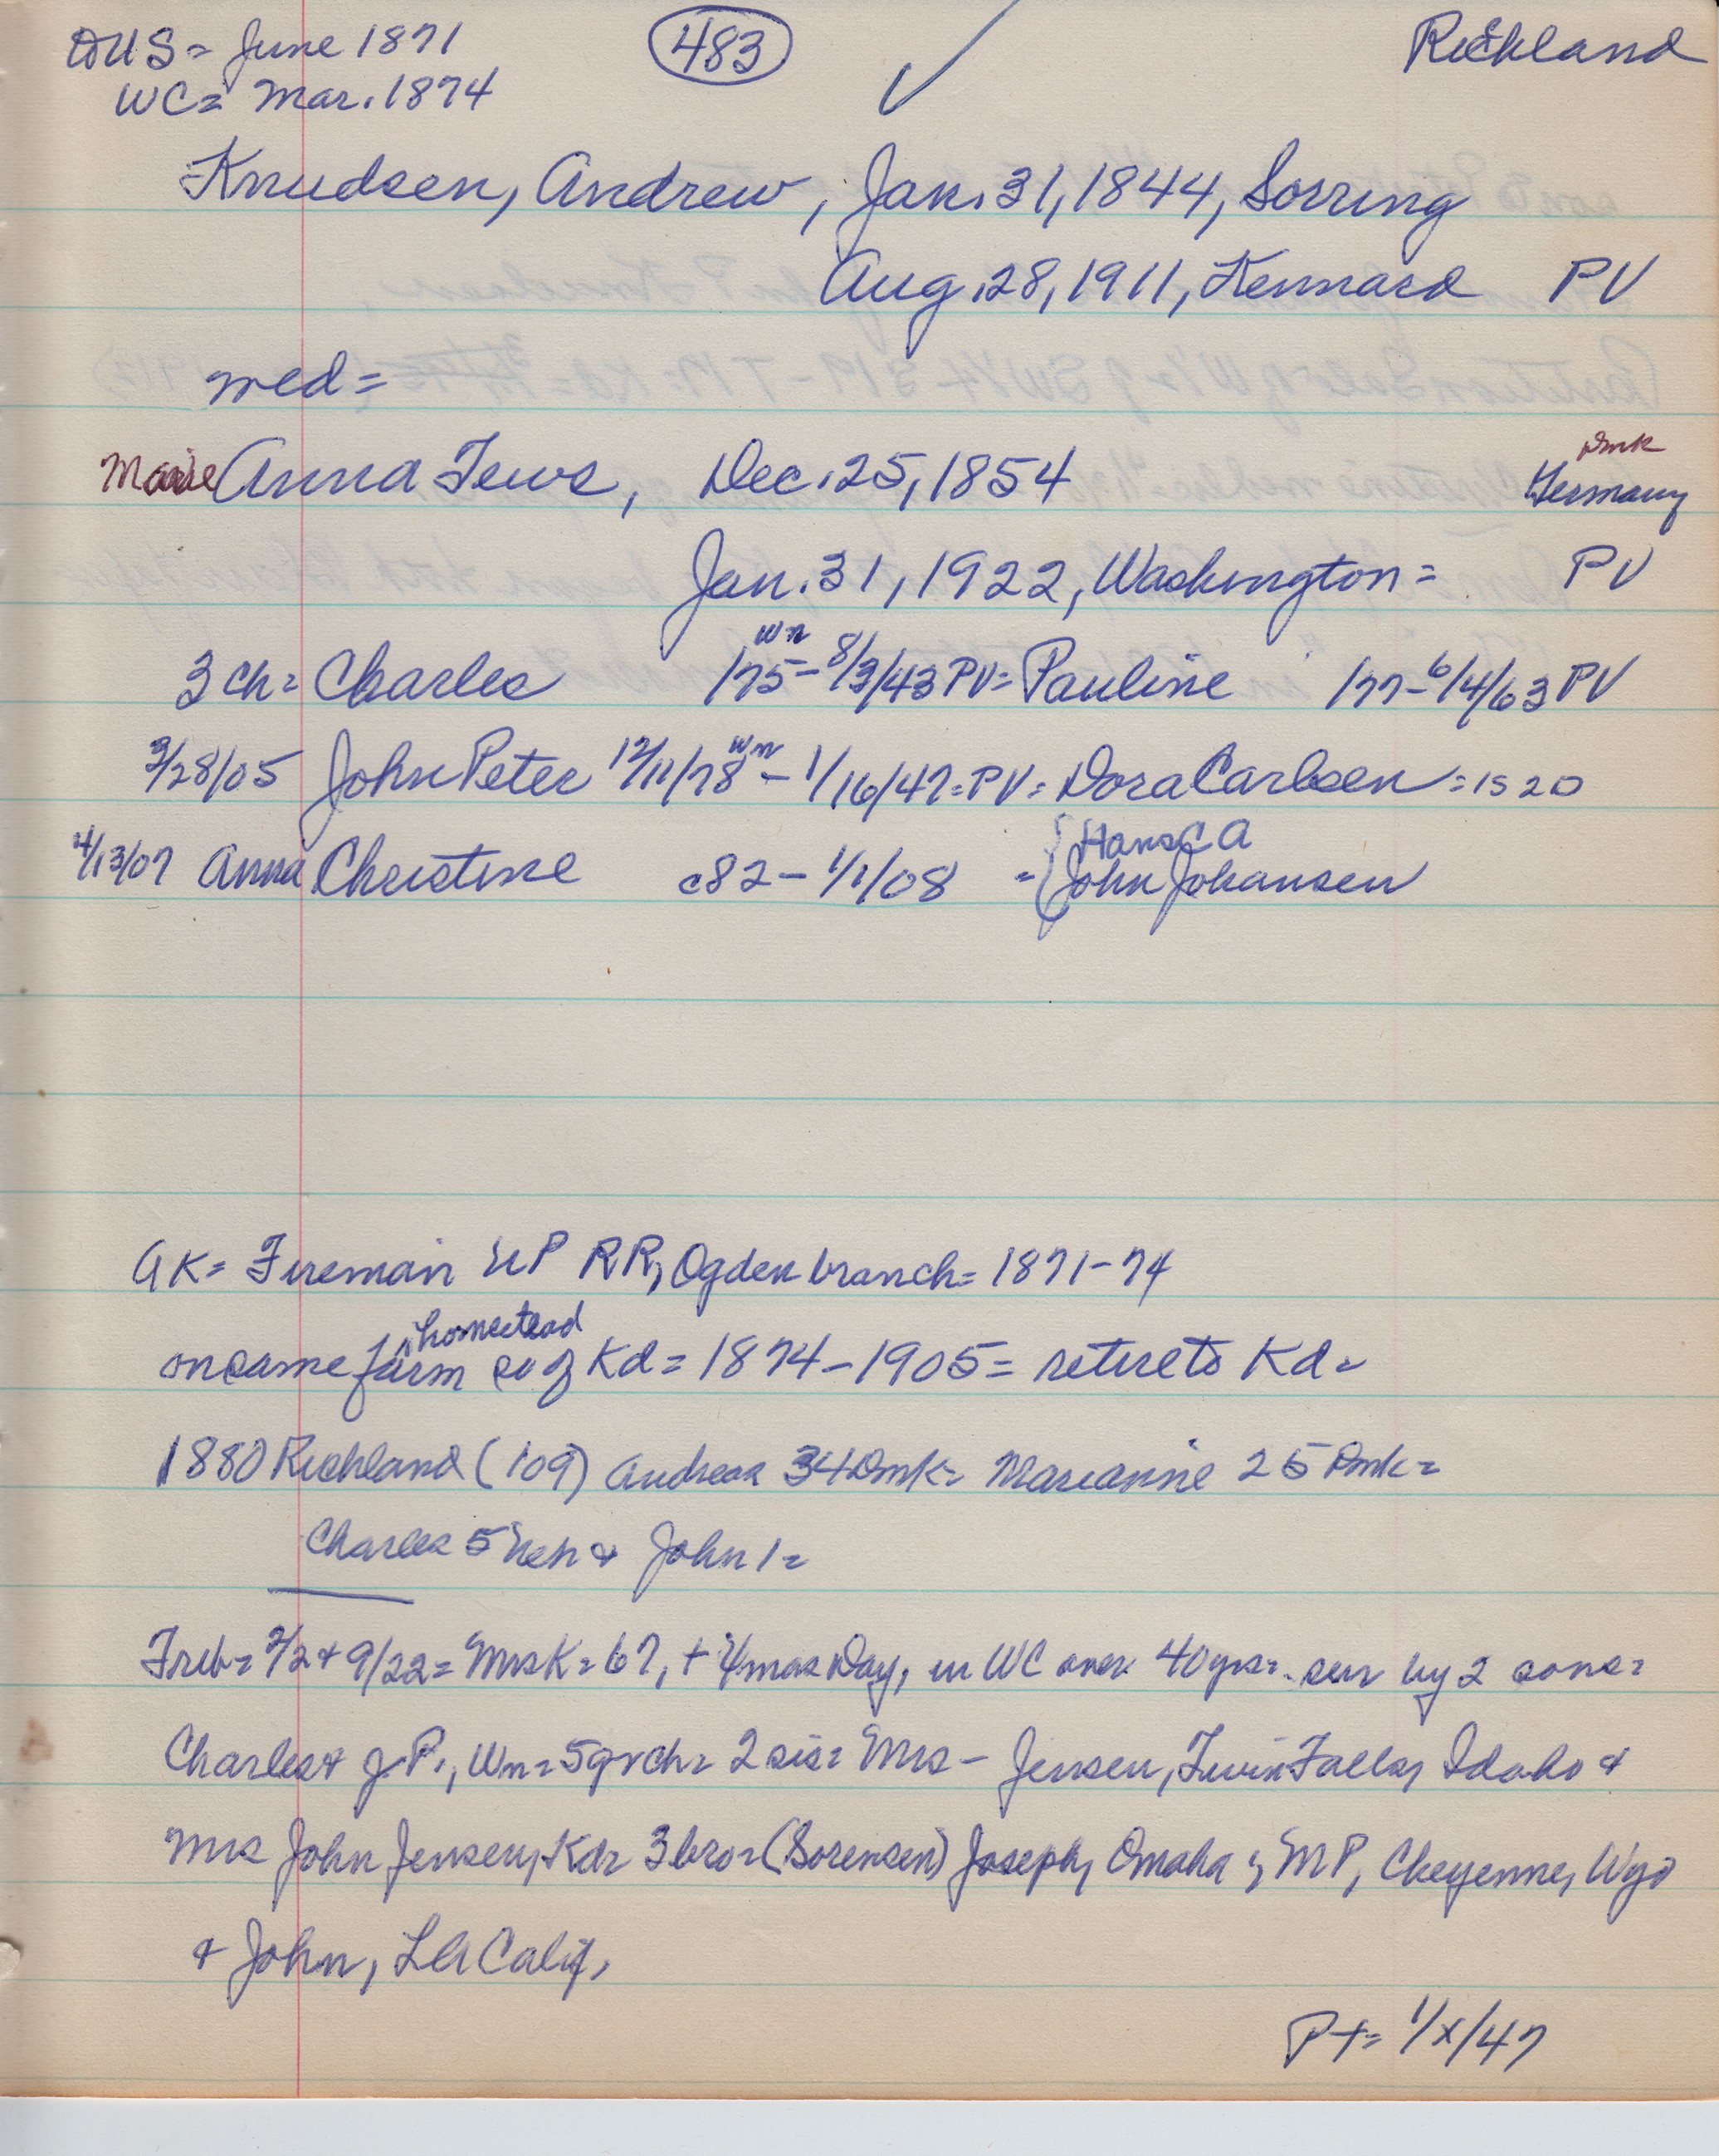 DUS = June 1871
483
Richland
WC = Mar. 1874
Knudsen, Andrew, Jan. 31, 1844, Sorring
Aug. 28, 1911, Kennard PV
med =
Dmk
Marie Anna Tews, Dec. 25, 1854 Germany
Jan. 31, 1922, Washington = PV
Wn
3 ch = Charles 175 - 8/3/43 PV = Pauline 177 - 6/4/63 PV
Wn
3/28/05 John Peter 12/11/78 - 1/16/47 = PV = Dora Carlsen = is 20
Hans C A
4/13/07 Anna Christine c82 - 1/1/08 = John Johansen
AK = Fireman UP RR, Ogden branch = 1871-74
homestead
on same farm sw of Kd = 1874-1905 = retire to Kd =
1880 Richland (109) Andreas 34 Dmk = Marianne 25 Dmk =
Charles 5 Neb & John 1 =
Trib = 2/2 & 9/22 = Mrs K = 67, + Xmas Day, in WC over 40 yrs = sur by 2 sons =
Charles & J.P., Wn = 5 grch = 2 sis = Mrs - Jensen, Twin Falls, Idaho &
Mrs John Jensen, Kd = 3 bro = (Sorensen) Joseph, Omaha; MP, Cheyenne, Wyo
& John, LA Calif,
Pt = 1/x/47